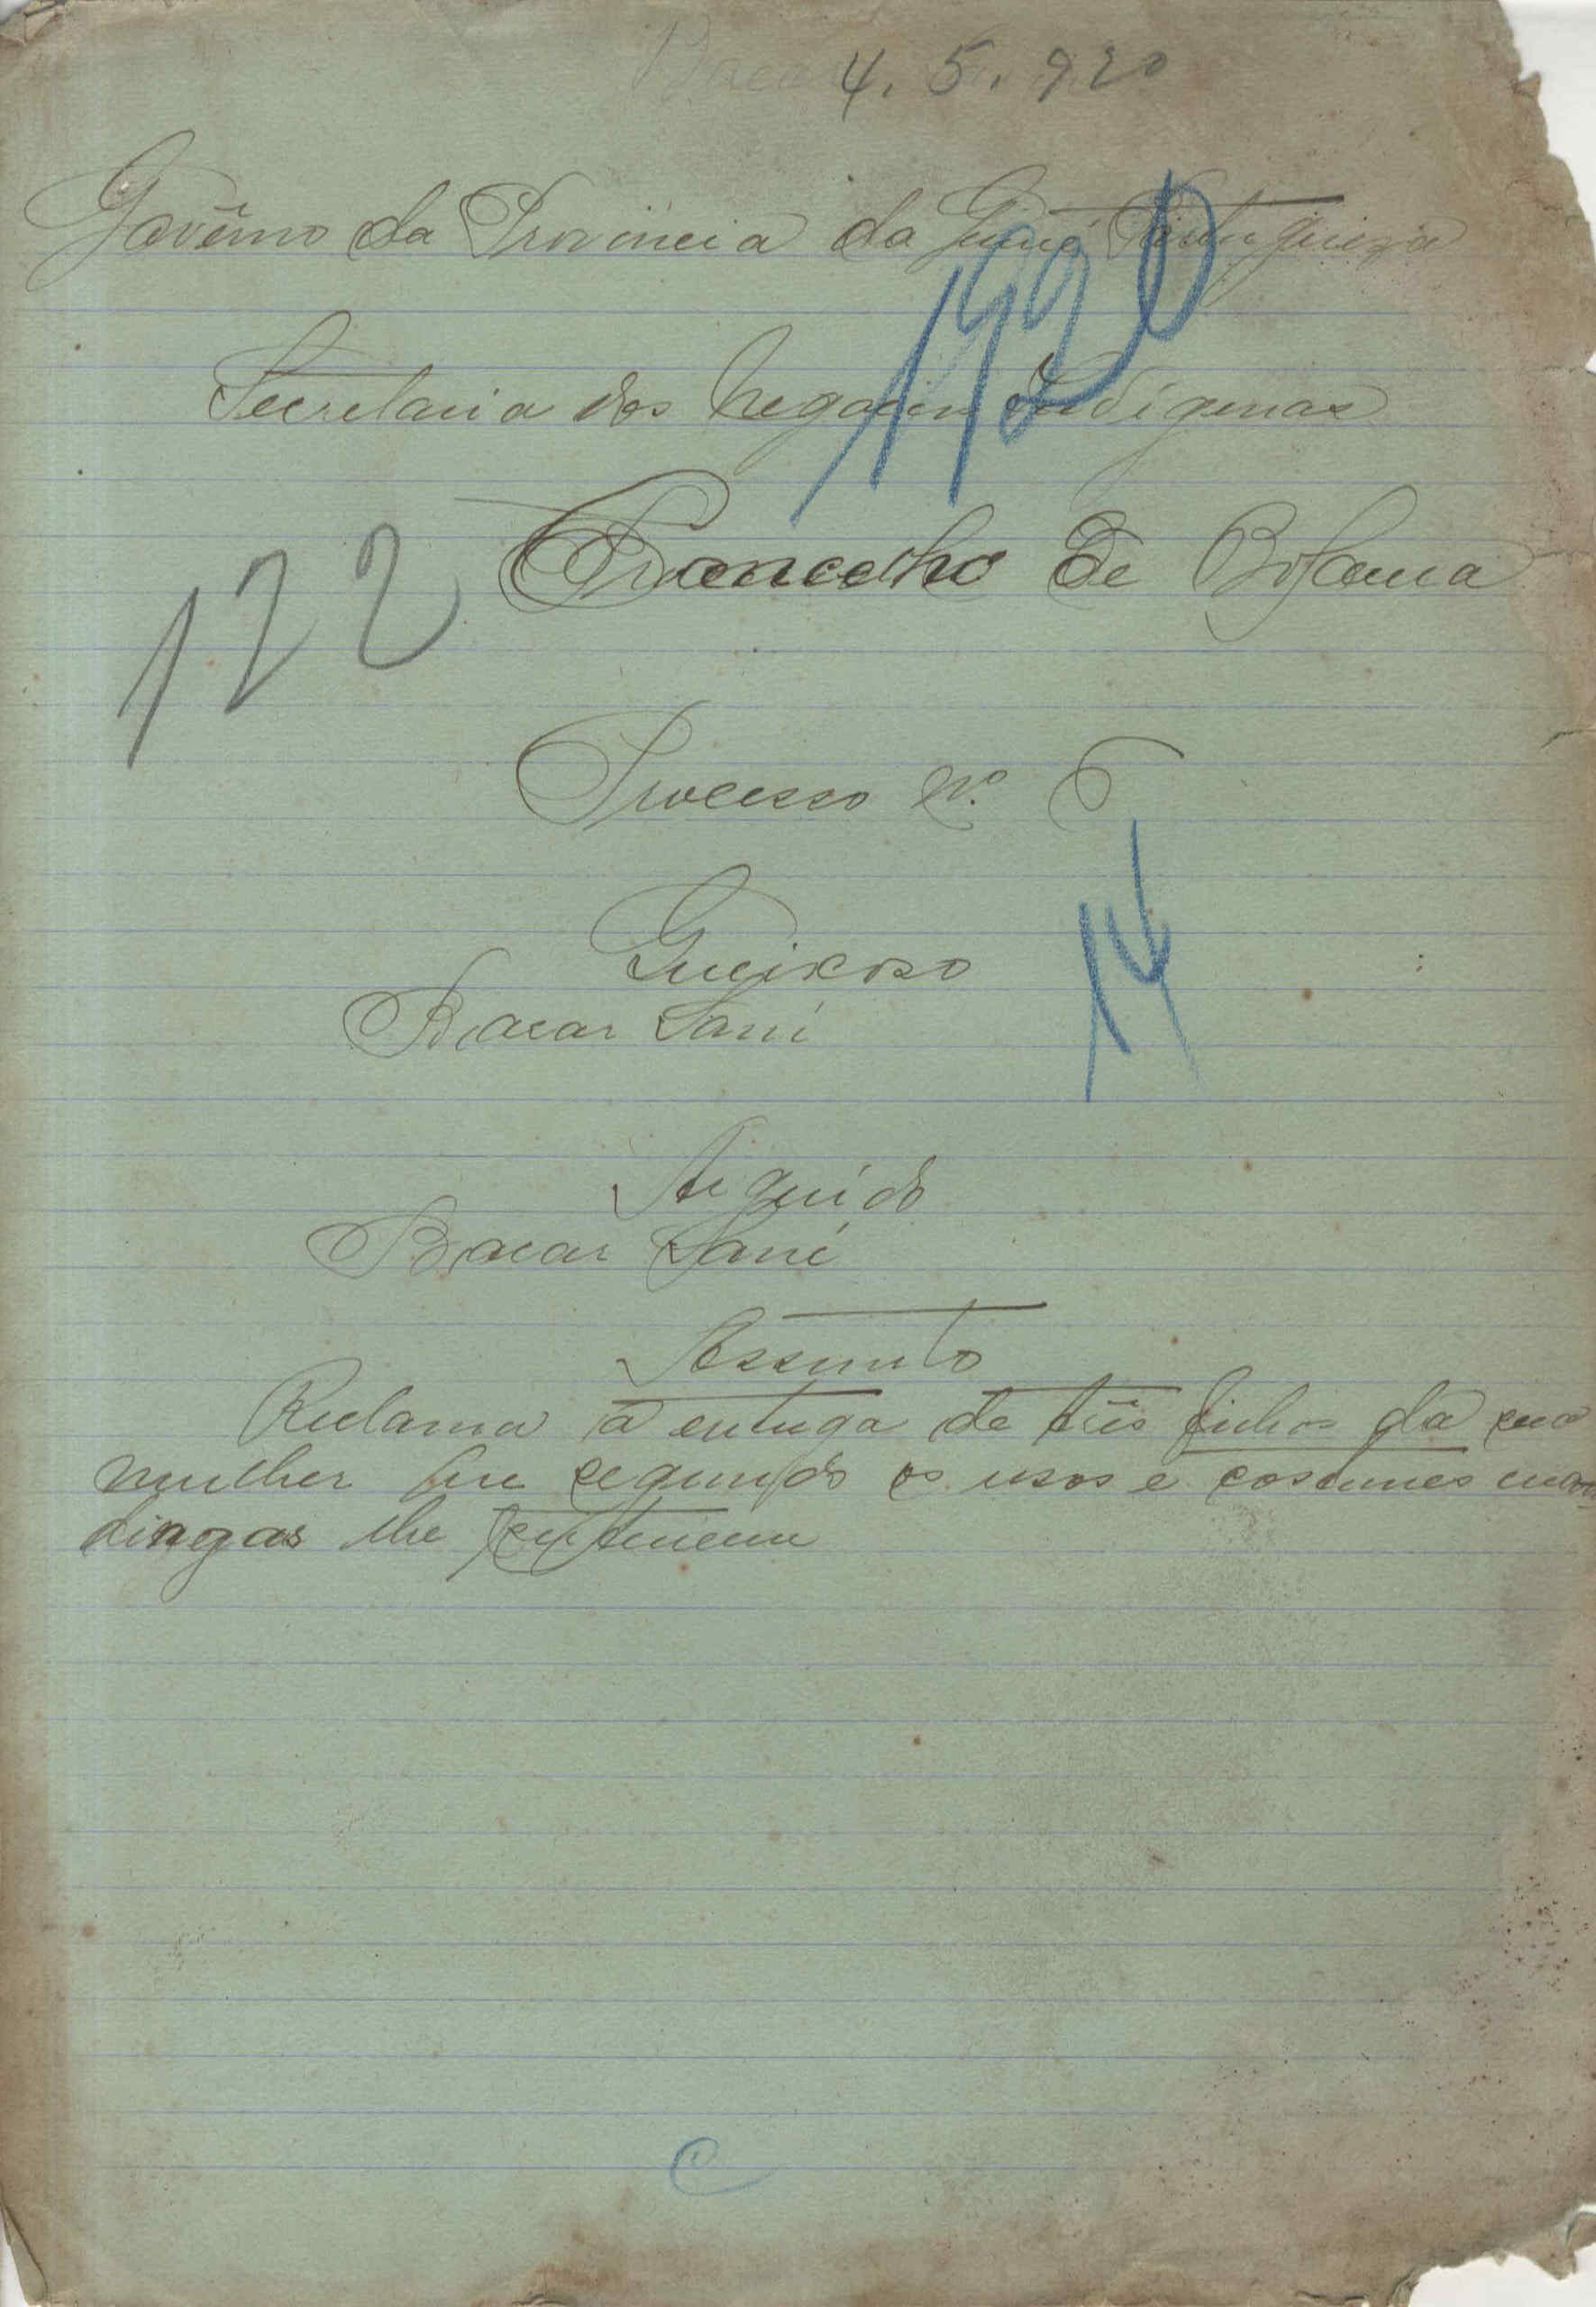 4. 5. 920
Govêrno da Provincia da Guiné Portugueza
1920
Secretaria dos Negocios Indígenas
Concelho de Bolama
122
Processo n.º 6
14
Queixoso
Bacar Sani
Arguido
Bacar Sané
Assunto
Reclama a entrega de três filhos da sua
mulher que segundo os usos e costumes man
dingas lhe pertencem
C